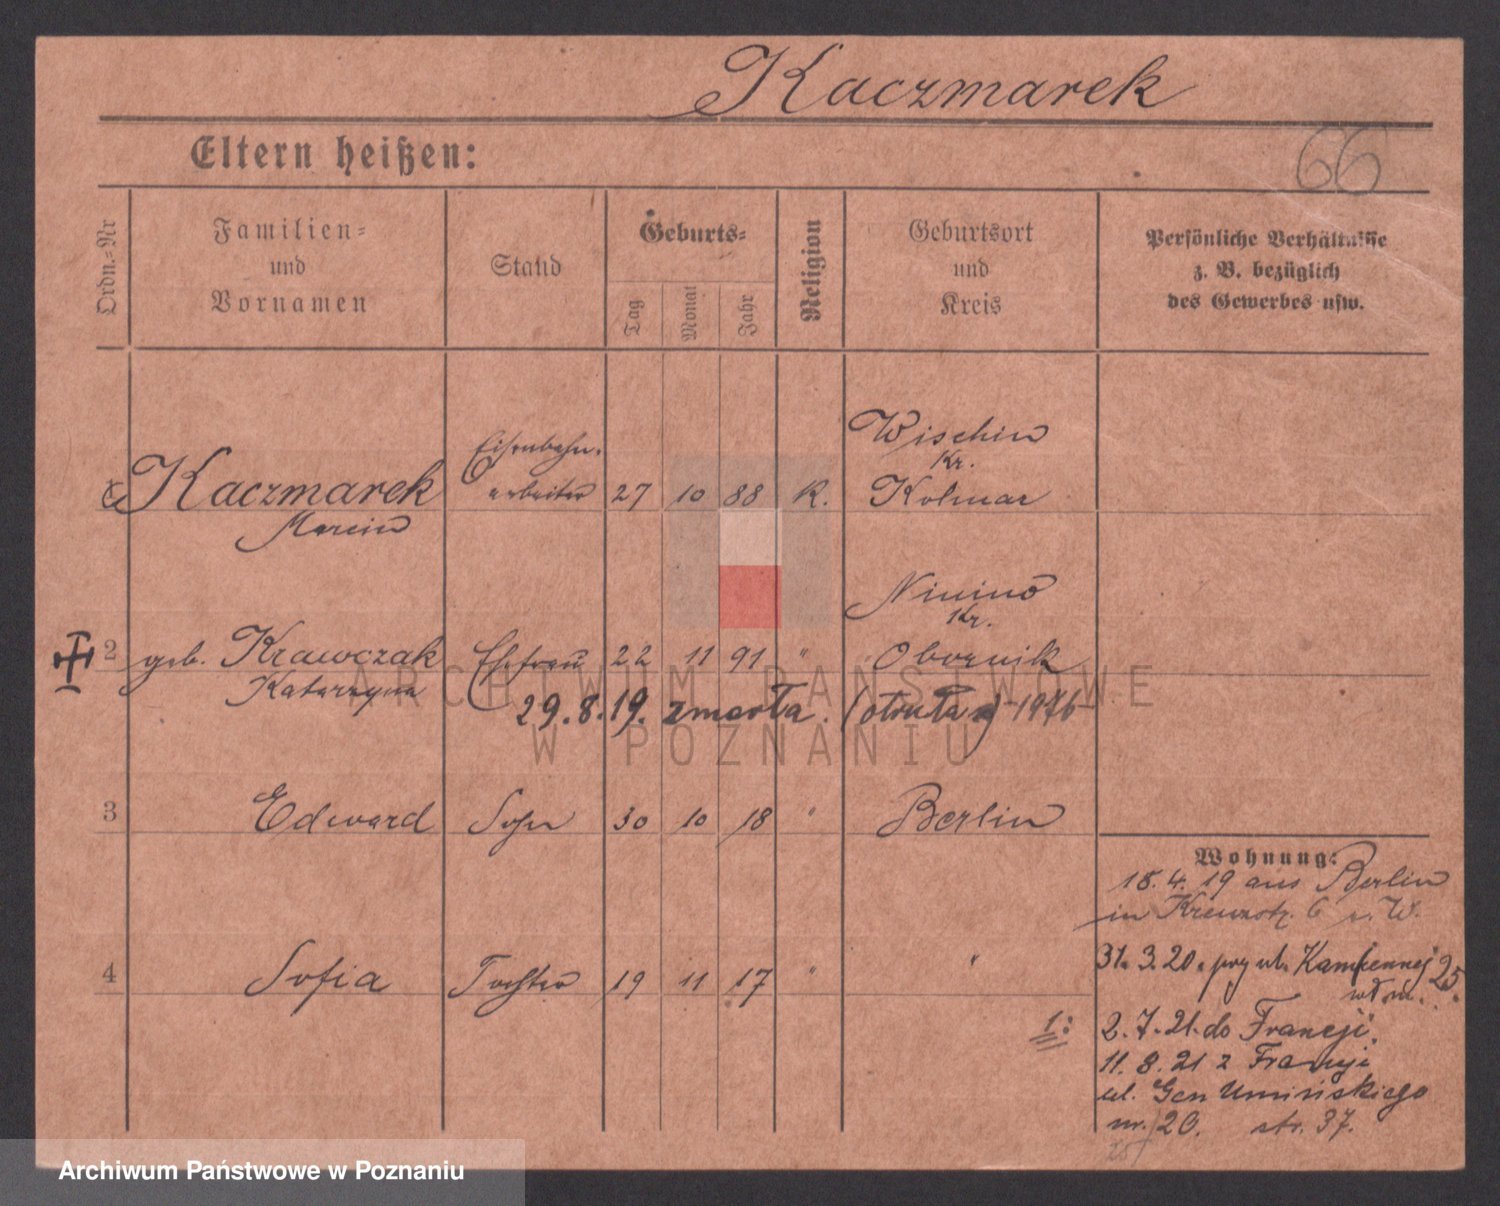 Kaczmarek
66
Eltern heißen:
Ordn.-Nr
Familien-
und
Vornamen
Stand
Geburts-
Tag
Monat
Jahr
Religion
Geburtsort
und
Kreis
Persönliche Verhältnisse
z. B. bezüglich
des Gewerbes usw.
1 Kaczmarek Eisenbahn- arbeiter 27 10 88 K. Wischin Kr. Kolmar
Marcin
2 geb. Krawczak Ehefrau 22 11 91 " Ninino Kr. Obornik
Katarzyna
29.8.19. zmarła. (otruta) 1976
3 Edward Sohn 30 10 18 " Berlin
4 Sofia Tochter 19 11 17 " "
Wohnung:
18.4.19 aus Berlin
in Kreuzstr. 6 b. W.
31.3.20. przy ul. Kamiennej 25.
wł. m.
1: 2.7.21. do Francji.
11.8.21 z Francji
ul. Gen Umińskiego
nr. 20. str. 37.
ARCHIWUM PAŃSTWOWE
W POZNANIU
Archiwum Państwowe w Poznaniu